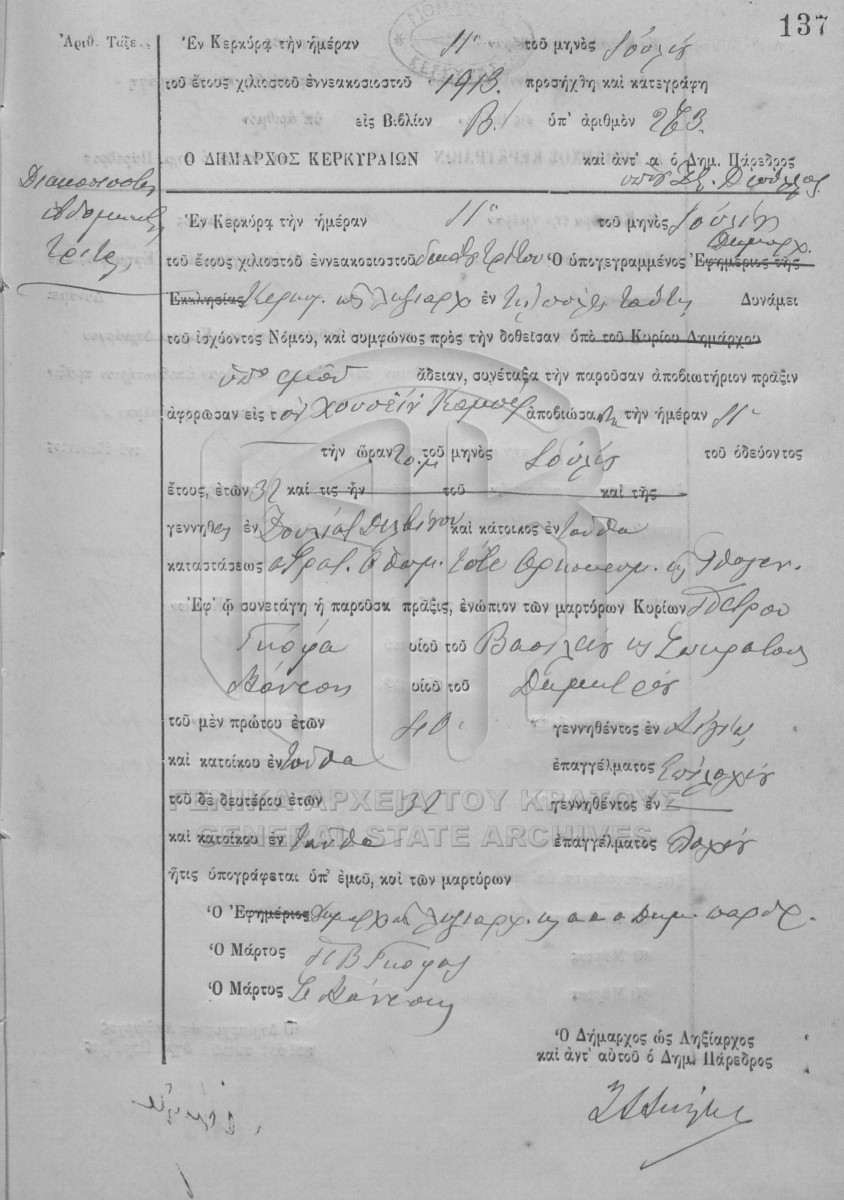 137
Ἀριθ. Τάξεως Ἐν Κερκύρᾳ τὴν ἡμέραν 11ην τοῦ μηνὸς Ἰουλίου
τοῦ ἔτους χιλιοστοῦ ἐννεακοσιοστοῦ 1913. προσήχθη καὶ κατεγράφη
εἰς Βιβλίον Β! ὑπ' ἀριθμὸν 273.
Ὁ ΔΗΜΑΡΧΟΣ ΚΕΡΚΥΡΑΙΩΝ καὶ ἀντ' α. ὁ Δημ. Πάρεδρος
Διακοσιοστὴ
ἑβδομηκοστὴ
τρίτη
Ἐν Κερκύρᾳ τὴν ἡμέραν 11η τοῦ μηνὸς Ἰουλίου
τοῦ ἔτους χιλιοστοῦ ἐννεακοσιοστοῦ δεκάτου τρίτου Ὁ ὑπογεγραμμένος Ἐφημέριος τῆς Δήμαρχ.
Ἐκκλησίας Κερκυρ. ὡς Ληξίαρχ ἐν τῇ πόλει ταύτῃ Δυνάμει
τοῦ ἰσχύοντος Νόμου, καὶ συμφώνως πρὸς τὴν δοθεῖσαν ὑπὸ τοῦ Κυρίου Δημάρχου
ὑπ' ἐμοῦ ἄδειαν, συνέταξα τὴν παροῦσαν ἀποβιωτήριον πρᾶξιν
ἀφορῶσαν εἰς τὸν Χουσεῒν ἀποβιώσαντα τὴν ἡμέραν 11ην
τὴν ὥραν τοῦ μηνὸς Ἰουλίου τοῦ ὁδεύοντος
ἔτους, ἐτῶν 32 καί τις ἦν τοῦ καὶ τῆς
γεννηθεὶς ἐν Δελβίνου καὶ κάτοικος ἐνταῦθα
καταστάσεως
Ἐφ' ᾧ συνετάγη ἡ παροῦσα πρᾶξις, ἐνώπιον τῶν μαρτύρων Κυρίων Πέτρου
Γκόφα υἱοῦ τοῦ Βασιλείου καὶ Σωκράτους
υἱοῦ τοῦ Δημητρίου
τοῦ μὲν πρώτου ἐτῶν 40. γεννηθέντος ἐν
καὶ κατοίκου ἐνταῦθα ἐπαγγέλματος Ἐπιλοχίου
τοῦ δὲ δευτέρου ἐτῶν 32 γεννηθέντος ἐν
καὶ κατοίκου ἐνταῦθα ἐπαγγέλματος Λοχίου
ἥτις ὑπογράφεται ὑπ' ἐμοῦ, καὶ τῶν μαρτύρων
Ὁ Ἐφημέριος Δήμαρχος Ληξίαρχ. κ α α ο Δημ. παρεδρ.
Ὁ Μάρτυς Π Β Γκόφας
Ὁ Μάρτυς
Ὁ Δήμαρχος ὡς Ληξίαρχος
καὶ ἀντ' αὐτοῦ ὁ Δημ. Πάρεδρος
ΓΕΝΙΚΑ ΑΡΧΕΙΑ ΤΟΥ ΚΡΑΤΟΥΣ
GENERAL STATE ARCHIVES